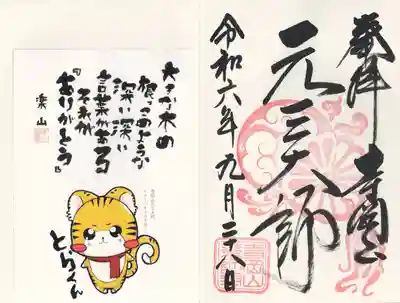 奉拝 寺岡山
元三大師
令和六年九月二十八日
大きな木の
根っこのような
深い深い
言葉がある
それが
「ありがとう」
楽山
とらくん